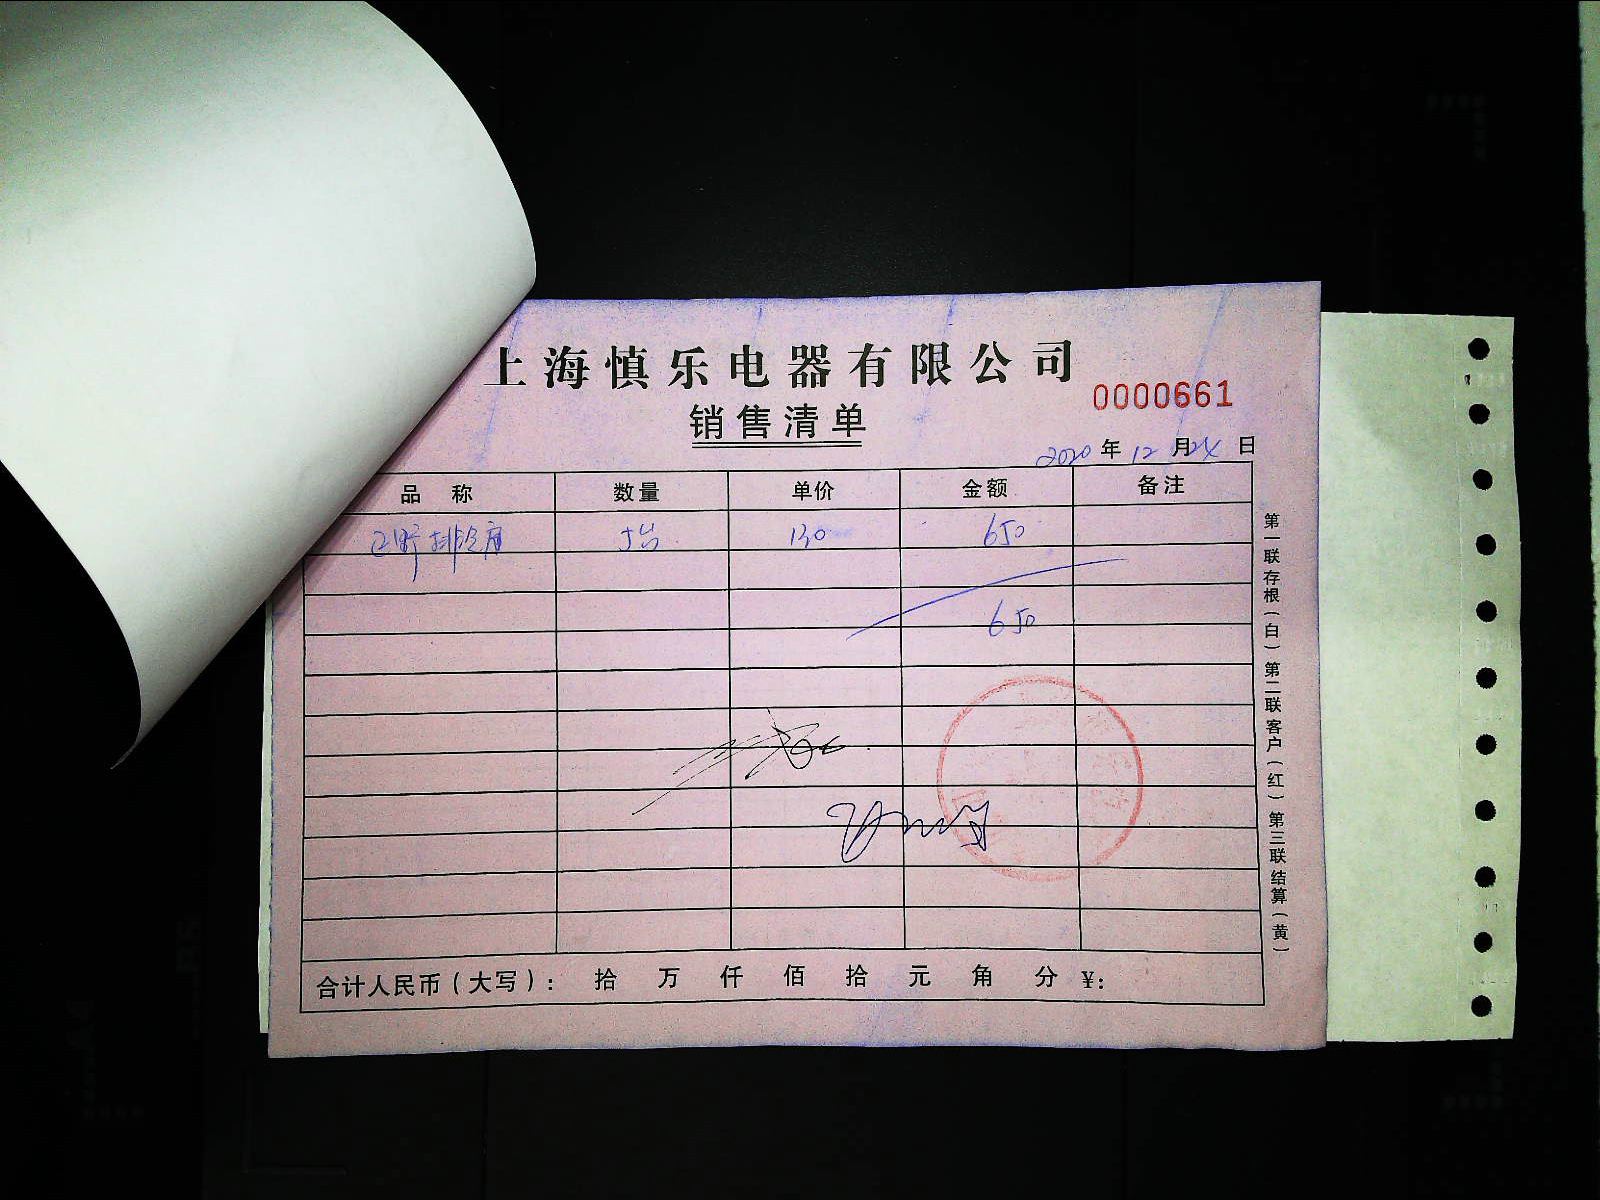 上海慎乐电器有限公司
0000661
销售清单
2020 年 12 月 24 日
品 称 数量 单价 金额 备注
5台 130 650
650
合计人民币（大写）： 拾 万 仟 佰 拾 元 角 分 ¥：
第一联存根（白） 第二联客户（红） 第三联结算（黄）